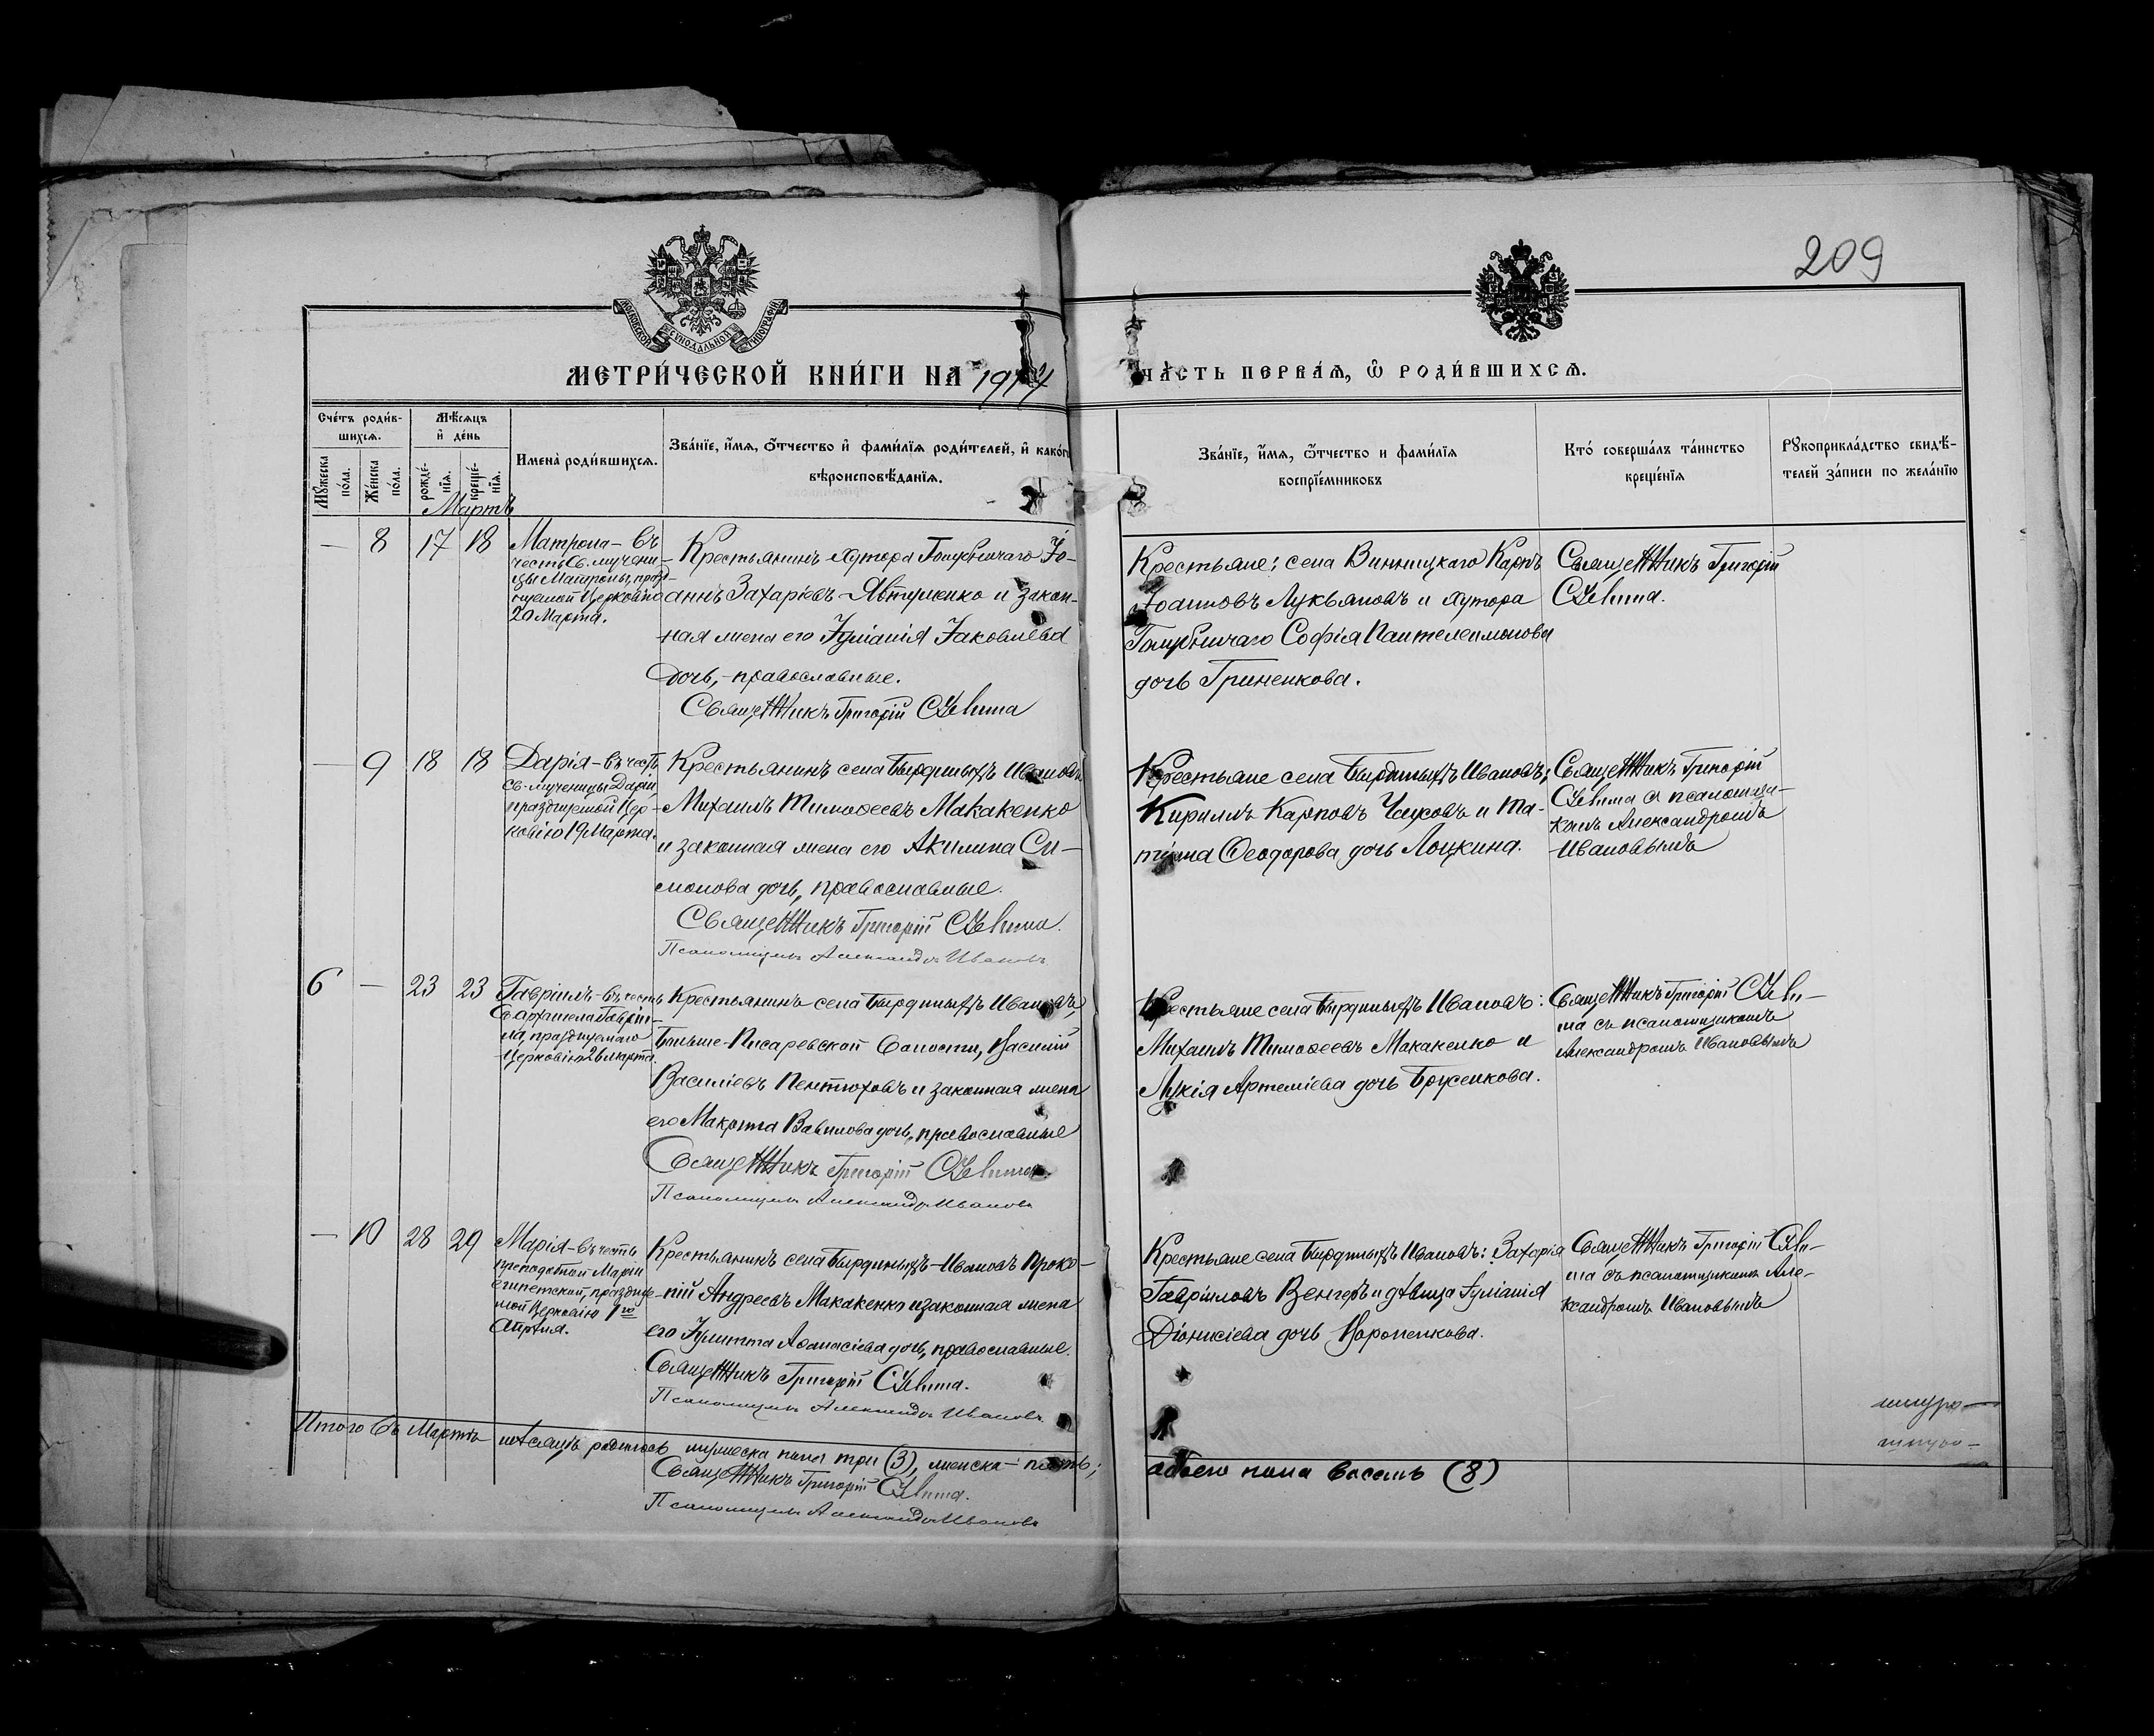 209
МОСКОВСКОЙ СѴНОДАЛЬНОЙ ТИПОГРАФІИ
МЕТРИ́ЧЕСКОЙ КНИ́ГИ НА 1914
ЧА́СТЬ ПЕРВАѦ, Ѿ РОДИ́ВШИХСѦ.
Сче́тъ роди́в-
шихсѧ.
Мꙋ́жеска по́ла.
Же́нска по́ла.
Мѣ́сѧцъ
и҆ де́нь
рожде́-
нїѧ.
креще́-
нїѧ.
Имена̀ роди́вшихсѧ.
Зва́нїе, и҆́мѧ, ѻ҆́тчество и҆ фами́лїѧ роди́телей, и҆ како́гѡ
вѣроисповѣ́данїѧ.
Зва́нїе, и҆́мѧ, ѻ҆́тчество и фами́лїѧ
воспрїе́мниковъ
Кто́ соверша́лъ та́инство
креще́нїѧ
Рꙋкоприкла́дство свидѣ́-
телей за́писи по жела́нїю
Мартъ
— 8 17 18
Матрона – въ
честь Св. мучени-
цы Матроны, празд-
нуемой Церковію
20 Марта.
Крестьянинъ хутора Голубничаго Іо-
аннъ Захаріевъ Явтушенко и закон-
ная жена его Іуліанія Іаковлева
дочь, – православные.
Священникъ Григорій
Крестьяне: села Винницкаго Карпъ
Іоанновъ Лукьяновъ и хутора
Голубничаго Софія Пантелеимонова
дочь Гриненкова.
Священникъ Григорій
— 9 18 18
Дарія – въ честь
Св. мученицы Даріи,
празднуемой Цер-
ковію 19 Марта.
Крестьянинъ села Бырдиныхъ Ивановъ
Михаилъ Тимоѳеевъ Макакенко
и законная жена его Акилина Си-
монова дочь, православные.
Священникъ Григорій
Псаломщикъ Александръ Ивановъ
Крестьяне села Бырдиныхъ Ивановъ:
Кирилъ Карповъ Чаусовъ и Та-
тіана Ѳеодорова дочь Лоцкина.
Священникъ Григорій
съ псаломщи-
комъ Александромъ
Ивановымъ
6 — 23 23
Гавріилъ – въ честь
Св. архангела Гавріи-
ла, празднуемаго
Церковію 26 Марта.
Крестьянинъ села Бырдиныхъ Ивановъ,
Больше-Писаревской волости, Василій
Василіевъ Пентюховъ и законная жена
его Макрина Вавилова дочь, православные
Священникъ Григорій
Псаломщикъ Александръ Ивановъ
Крестьяне села Бырдиныхъ Ивановъ:
Михаилъ Тимоѳеевъ Макакенко и
Лукія Артеміева дочь Бруsенкова.
Священникъ Григорій
съ псаломщикомъ
Александромъ Ивановымъ
— 10 28 29
Марія – въ честь
преподобной Маріи
египетской, празднуе-
мой Церковію 1го
Апрѣля.
Крестьянинъ села Бырдиныхъ-Ивановъ Проко-
пій Андреевъ Макакенко и законная жена
его Іулитта Аѳанасіева дочь, православные.
Священникъ Григорій
Псаломщикъ Александръ Ивановъ
Крестьяне села Бырдиныхъ Ивановъ: Захарія
Гавріиловъ Венгеръ и дѣвица Іуліанія
Діонисіева дочь Короленкова.
Священникъ Григорій
съ псаломщикомъ Але-
ксандромъ Ивановымъ
Итого въ Мартѣ мѣсяцѣ родилось мужеска пола три (3), женска – пять;
обоего пола восемь (8)
Священникъ Григорій
Псаломщикъ Александръ Ивановъ